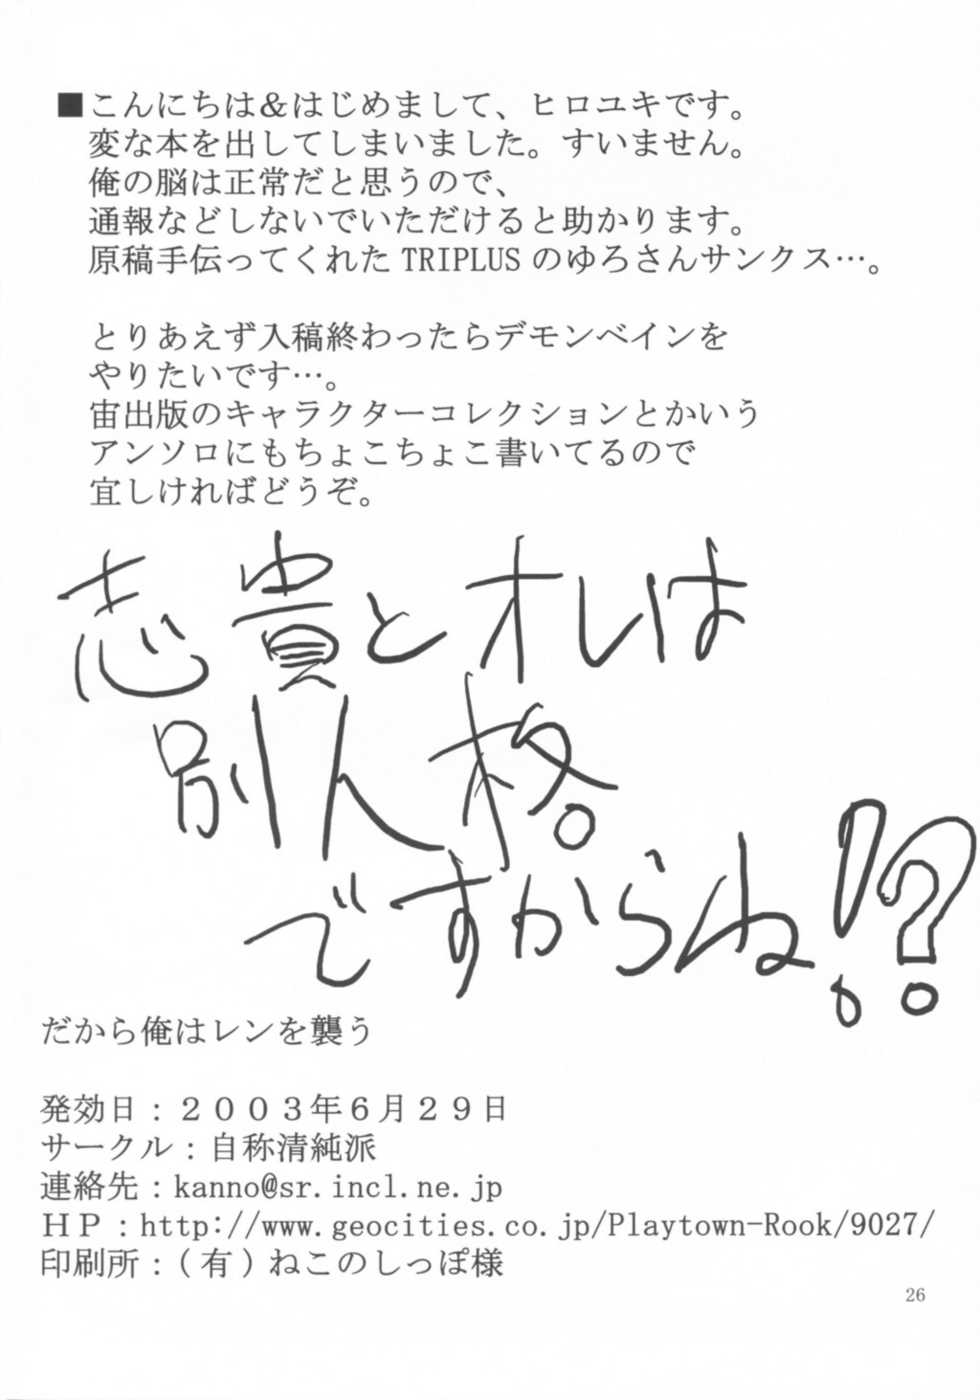 ■こんにちは＆はじめまして、ヒロユキです。
変な本を出してしまいました。すいません。
俺の脳は正常だと思うので、
通報などしないでいただけると助かります。
原稿手伝ってくれた TRIPLUS のゆろさんサンクス…。
とりあえず入稿終わったらデモンベインを
やりたいです…。
宙出版のキャラクターコレクションとかいう
アンソロにもちょこちょこ書いてるので
宜しければどうぞ。
志貴とオレは
別人格。
ですからね!?
だから俺はレンを襲う
発効日：２００３年６月２９日
サークル：自称清純派
連絡先：kanno@sr.incl.ne.jp
ＨＰ：http://www.geocities.co.jp/Playtown-Rook/9027/
印刷所：(有)ねこのしっぽ様
26